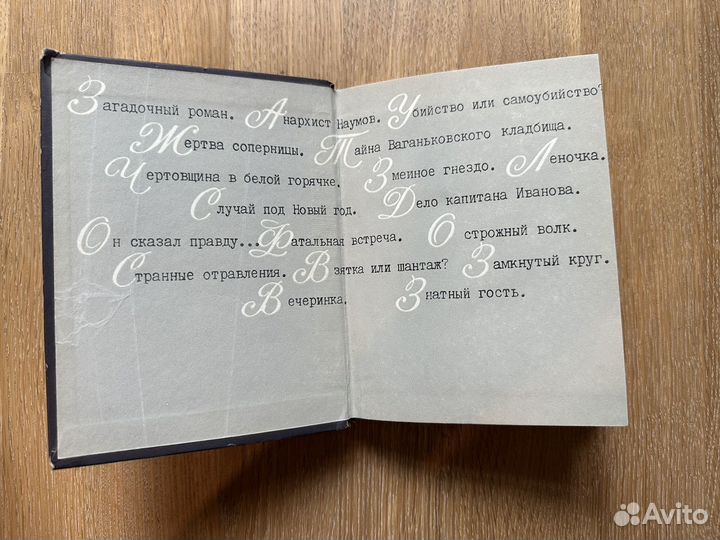 Загадочный роман. Анархист Наумов. Убийство или самоубийство?
Жертва соперницы. Тайна Ваганьковского кладбища.
Чертовщина в белой горячке. Змеиное гнездо. Леночка.
Случай под Новый год. Дело капитана Иванова.
Он сказал правду... Фатальная встреча. Осторожный волк.
Странные отравления. Взятка или шантаж? Замкнутый круг.
Вечеринка. Знатный гость.
Avito